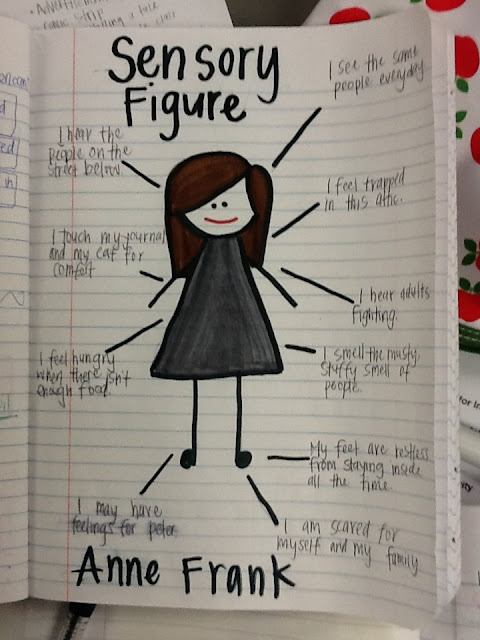 Sensory
Figure
I see the same
people everyday.
I hear the
people on the
street below.
I feel trapped
in this attic.
I touch my journal
and my cat for
comfort
I hear adults
fighting.
I feel hungry
when there isn't
enough food.
I smell the musty,
stuffy smell of
people.
My feet are restless
from staying inside
all the time.
I may have
feelings for peter.
I am scared for
myself and my family
Anne Frank